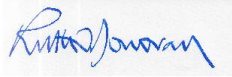 Ruth Donovan